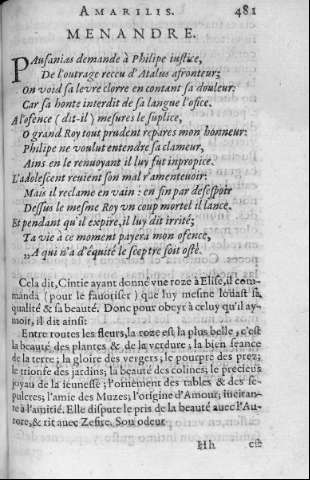 AMARILIS. 481
MENANDRE.
PAusanias demande à Philipe iustice,
De l'outrage receu d'Atalus afronteur;
On void sa levre clorre en contant sa douleur:
Car sa honte interdit de sa langue l'ofice.
A l'ofence (dit-il) mesures le suplice,
O grand Roy tout prudent repares mon honneur:
Philipe ne voulut entendre sa clameur,
Ains en le renuoyant il luy fut inpropice.
L'adolescent reuient son mal r'amenteuoir:
Mais il reclame en vain: en fin par desespoir
Dessus le mesme Roy vn coup mortel il lance.
Et pendant qu'il expire, il luy dit irrité;
Ta vie à ce moment payera mon ofence,
„A qui n'a d'équité le sceptre soit osté.
Cela dit, Cintie ayant donné vne roze à Elise, il com-
manda (pour le fauoriser) que luy mesme louast sa
qualité & sa beauté. Donc pour obeyr à celuy qu'il ay-
moit, il dit ainsi:
Entre toutes les fleurs, la roze est la plus belle, c'est
la beauté des plantes & de la verdure; la bien seance
de la terre; la gloire des vergers; le pourpre des prez;
le trionfe des jardins; la beauté des colines; le precieux
joyau de la ieunesse; l'ornement des tables & des se-
pulcres; l'amie des Muzes; l'origine d'Amour, incitan-
te à l'amitié. Elle dispute le pris de la beauté auec l'Au-
rore, & rit auec Zefire. Son odeur
Hh est